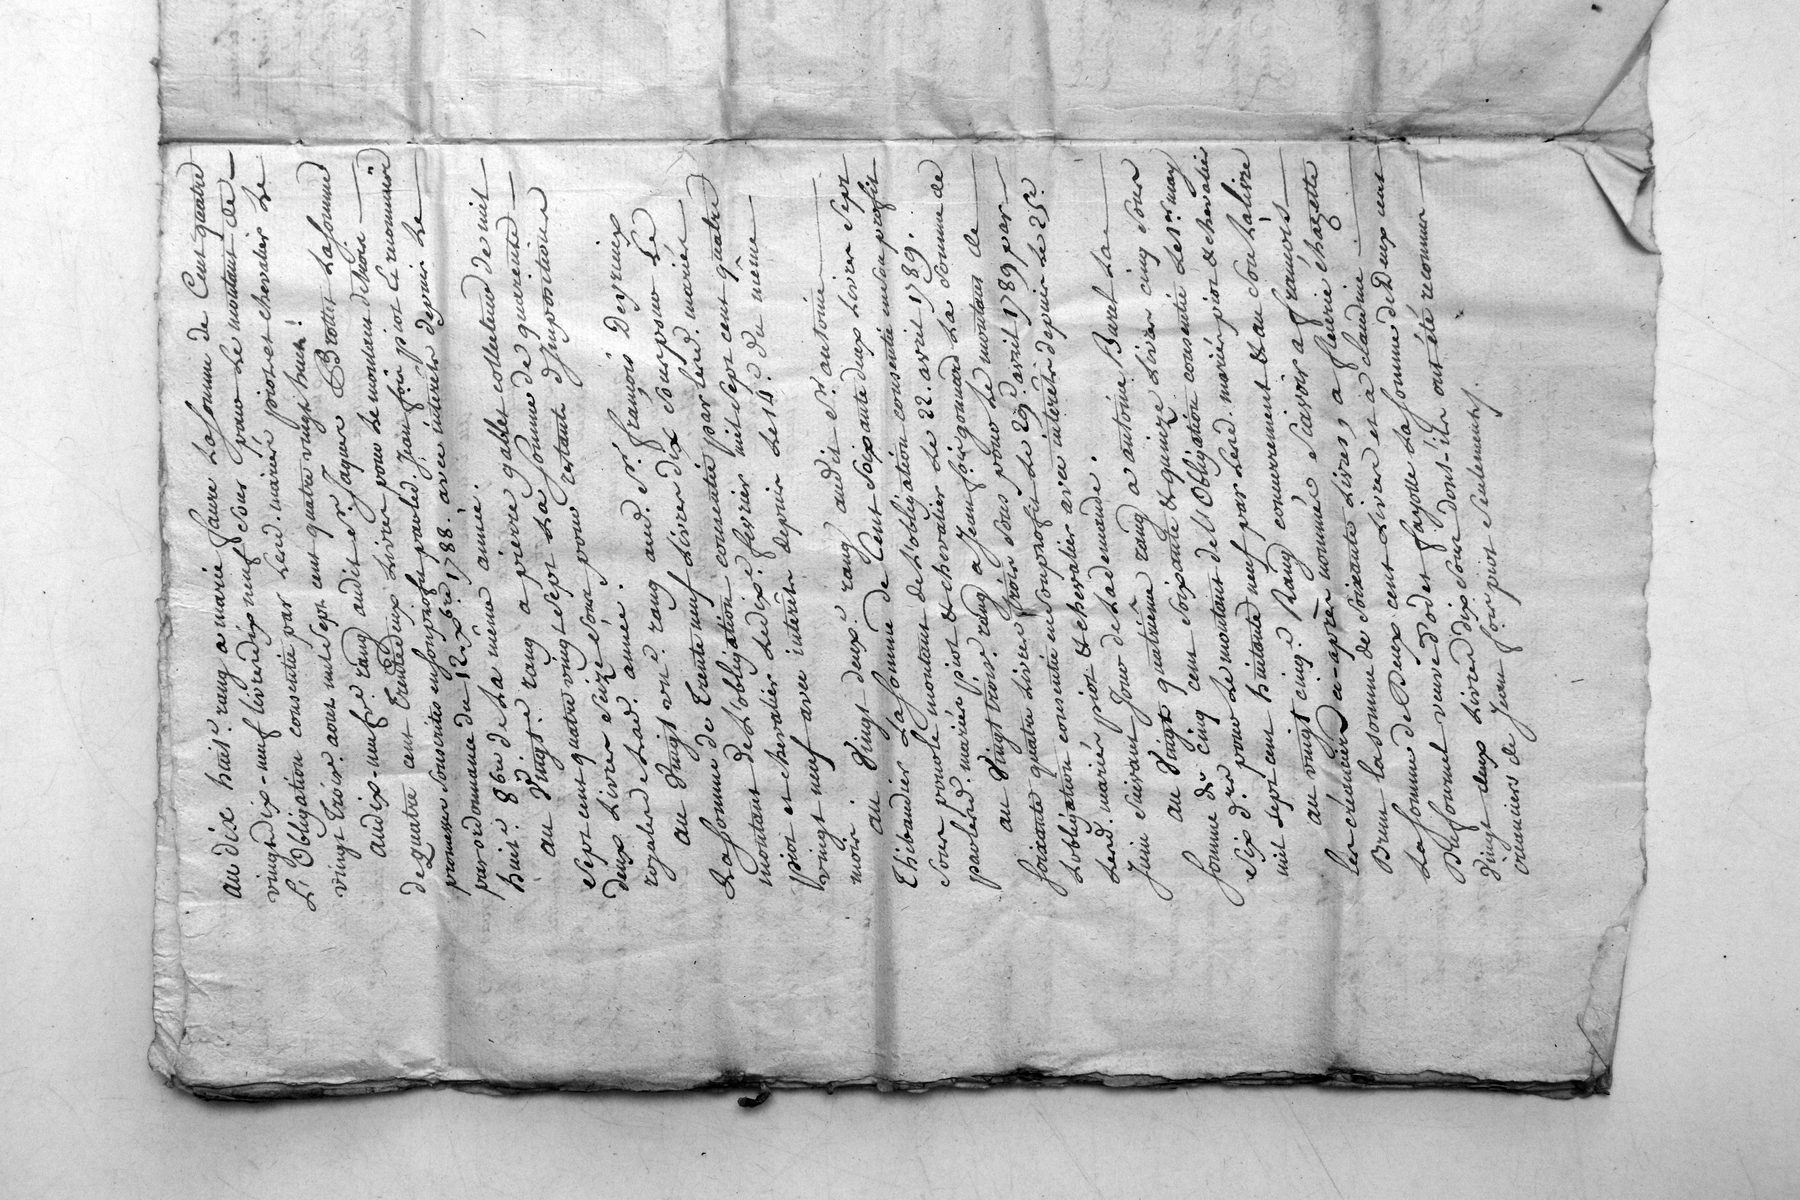 au dix huit.e rang a marie faure la somme de Cent quatre
vingt dix-neuf livres dix neuf sous pour le montant de
L'Obligation consentie par Led. mariés piot et chevalier Le
vingt Trois aout mil sept cent quatre vingt huit.
au dix-neuf.e rang audit S.r Jaques Brottet La somme
de quatre cent Trente deux Livres pour le montant de trois
promesse souscrites en son profit par led. Jean fois piot et reconnues
par ordonnance du 12. 1788. avec interets depuis Le
huit 8bre de La même année.
au Vingt.e rang a pierre gabet collecteur de mil
sept cent quatre vingt sept La somme de quarente
deux Livres seize sous pour restante d'Imposition
royales de Lad. année.
au Vingt un.e rang aud. S.r françois Deyrieux
La somme de Trente neuf Livres dix sous pour Le
montant de L'obligation consentie par Led. mariés
piot et chevalier Le dix.e fevrier mil sept cent quatre
vingt neuf avec interêts depuis Le 14.e du même
mois.
au Vingt deux.e rang audit S.r antoine
Thibaudier La somme de Cent soixante deux Livres sept
sous pour le montant de L'obligation consentie en son profit
par Led. mariés piot & chevalier Le 22. avril 1789.
au Vingt trois.e rang a Jean fois gonnard La somme de
soixante quatre Livres trois sous pour Le montant de
Lobligation consentie en son profit Le 29.e avril 1789 par
Led. mariés piot & chevalier avec interêts depuis Le 25.e
Juin suivant Jour de La demande.
au Vingt quatrième rang a antoine Buret La
somme de cinq cent soixante & quinze Livres cinq sous
six d.ers pour Le montant de L'Obligation consentie Le 1.er may
mil sept cent huitante neuf par Led. mariés piot & chevalier
au vingt cinq.e Rang concurremment & au sou La livre
les créanciers ci-après nommés scavoir a françois
Brun la somme de soixante Livres, a fleurie chazette
La somme de Deux cent Livres et a claudine
Buffonnet veuve d'odet fayolle La somme de Deux cent
Vingt deux Livres dix sous dont ils ont été reconnus
créanciers de Jean fois piot seulement.